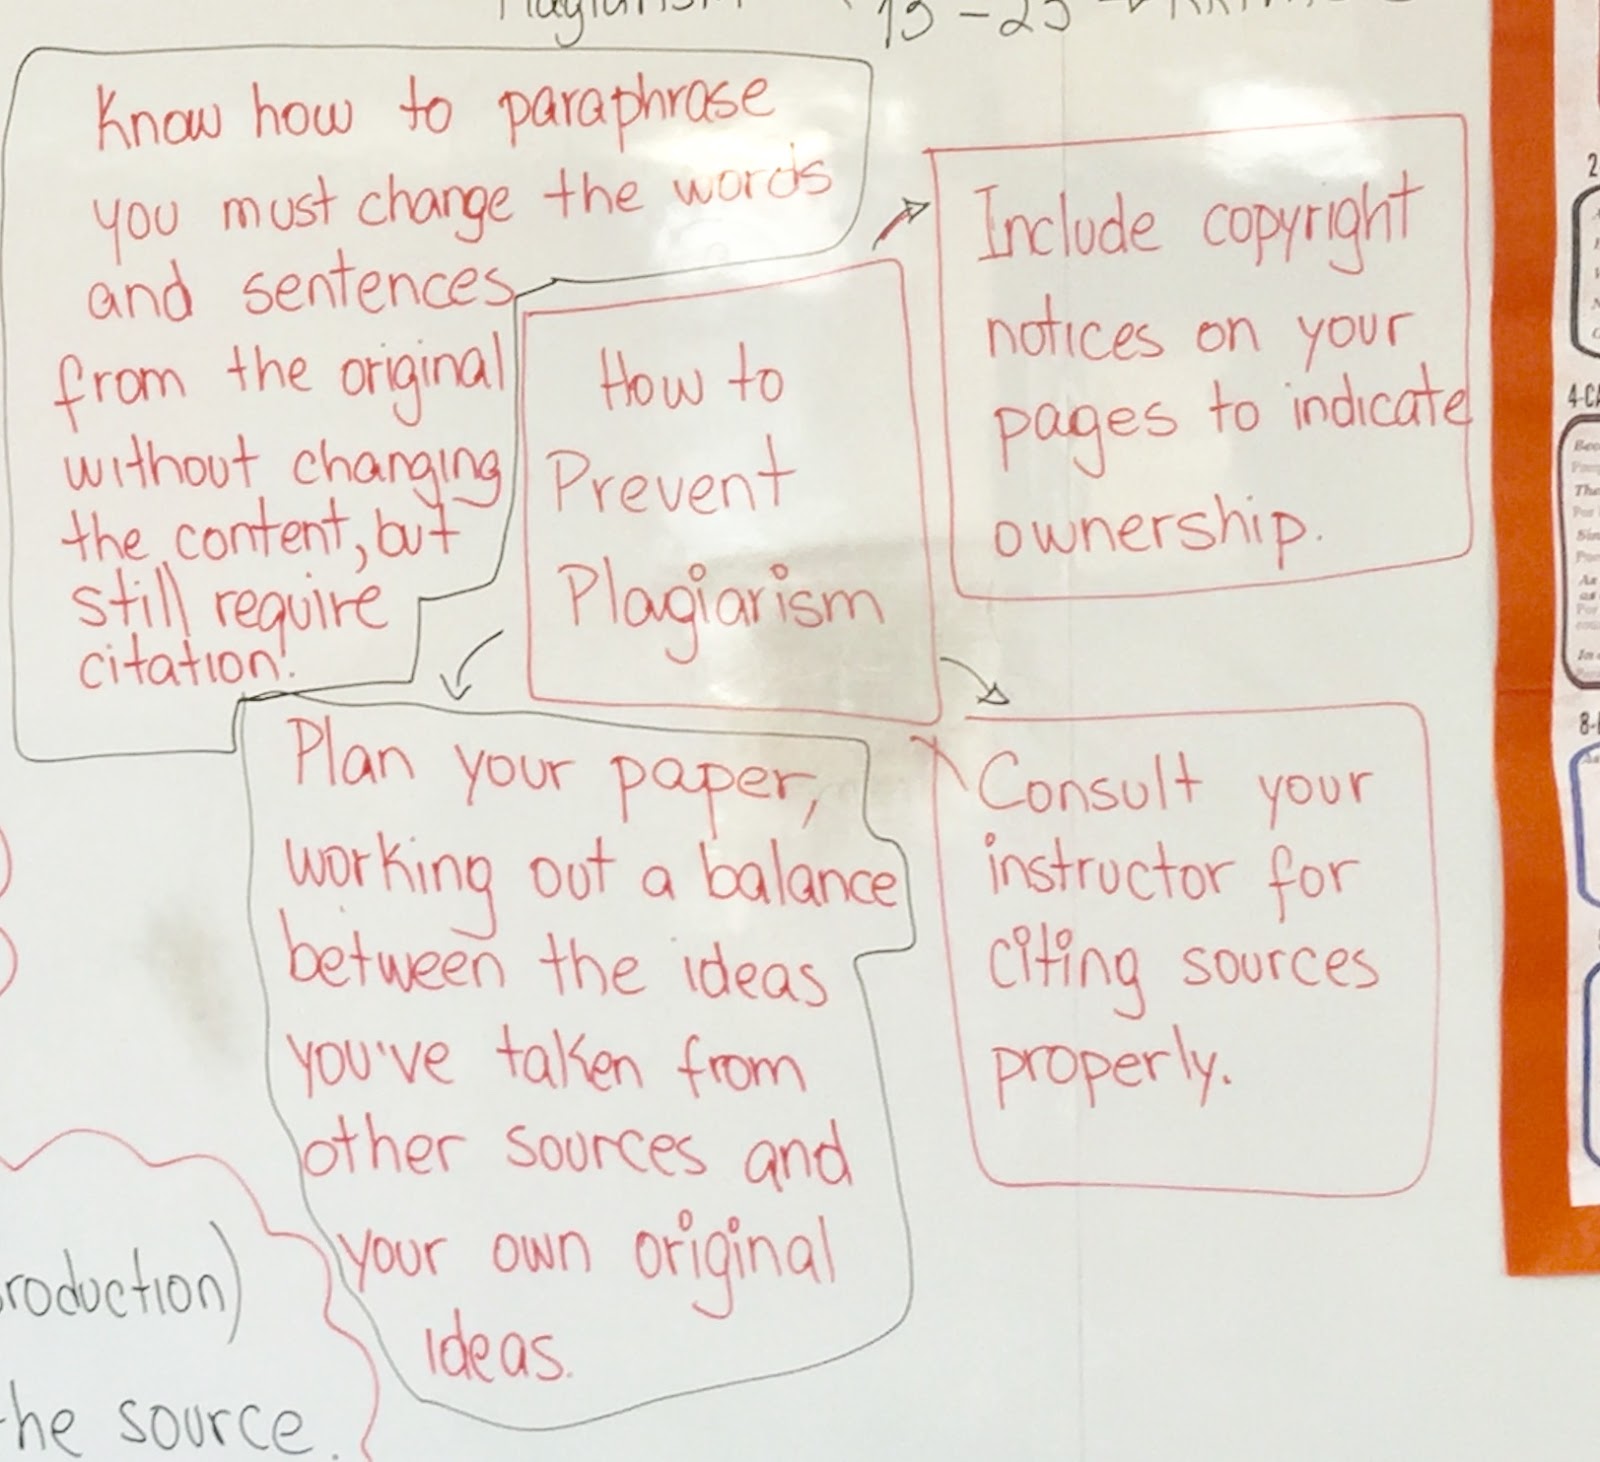 Plagiarism
Know how to paraphrase
you must change the words
and sentences
from the original
without changing
the content, but
still require
citation!
How to
Prevent
Plagiarism
Include copyright
notices on your
pages to indicate
ownership.
Plan your paper,
working out a balance
between the ideas
you've taken from
other sources and
your own original
ideas.
Consult your
instructor for
citing sources
properly.
roduction)
he source.